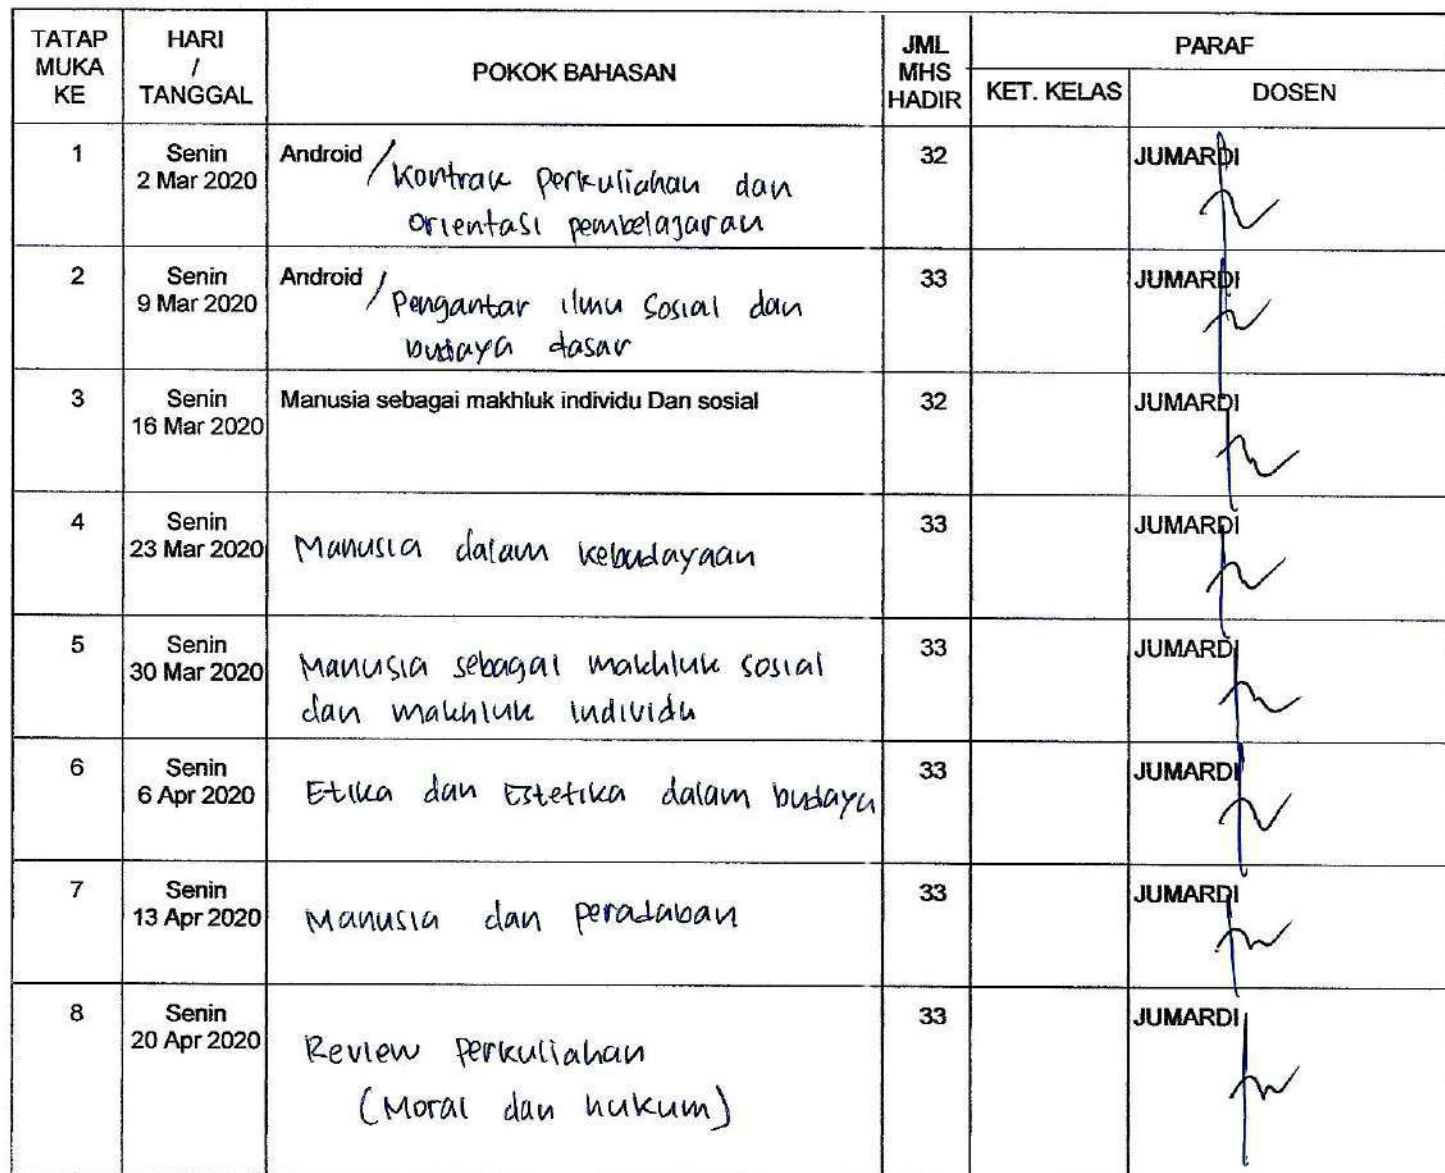 TATAP MUKA KE | HARI / TANGGAL | POKOK BAHASAN | JML MHS HADIR | PARAF
KET. KELAS | DOSEN
1 | Senin 2 Mar 2020 | Android / Kontrak perkuliahan dan orientasi pembelajaran | 32 | JUMARDI
2 | Senin 9 Mar 2020 | Android / Pengantar ilmu sosial dan budaya dasar | 33 | JUMARDI
3 | Senin 16 Mar 2020 | Manusia sebagai makhluk individu Dan sosial | 32 | JUMARDI
4 | Senin 23 Mar 2020 | Manusia dalam kebudayaan | 33 | JUMARDI
5 | Senin 30 Mar 2020 | Manusia sebagai makhluk sosial dan makhluk individu | 33 | JUMARDI
6 | Senin 6 Apr 2020 | Etika dan Estetika dalam budaya | 33 | JUMARDI
7 | Senin 13 Apr 2020 | Manusia dan peradaban | 33 | JUMARDI
8 | Senin 20 Apr 2020 | Review perkuliahan (Moral dan hukum) | 33 | JUMARDI